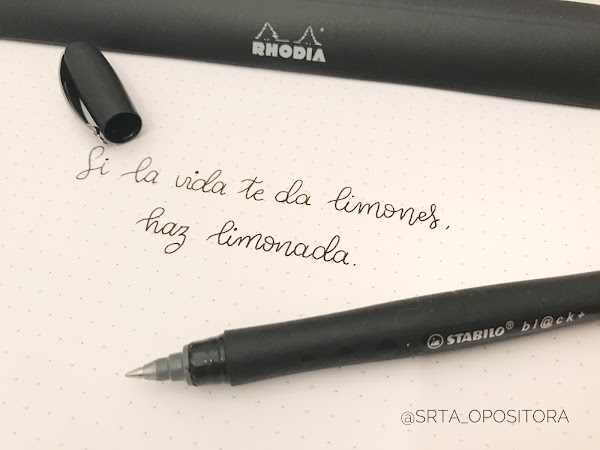 RHODIA
Si la vida te da limones,
haz limonada.
STABILO® bl@ck+
@SRTA_OPOSITORA